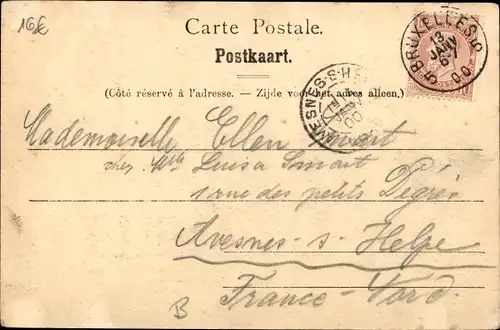 16€
Carte Postale.
Postkaart.
(Côté réservé à l'adresse. — Zijde voor het adres alleen.)
BRUXELLES 5
13
JANV
6
00
AVESNES-S-HE
00
Mademoiselle Ellen Smart
chez Mlle Luisa Smart
1 rue des petits Degrés
Avesnes-s-Helpe
France-Nord.
B